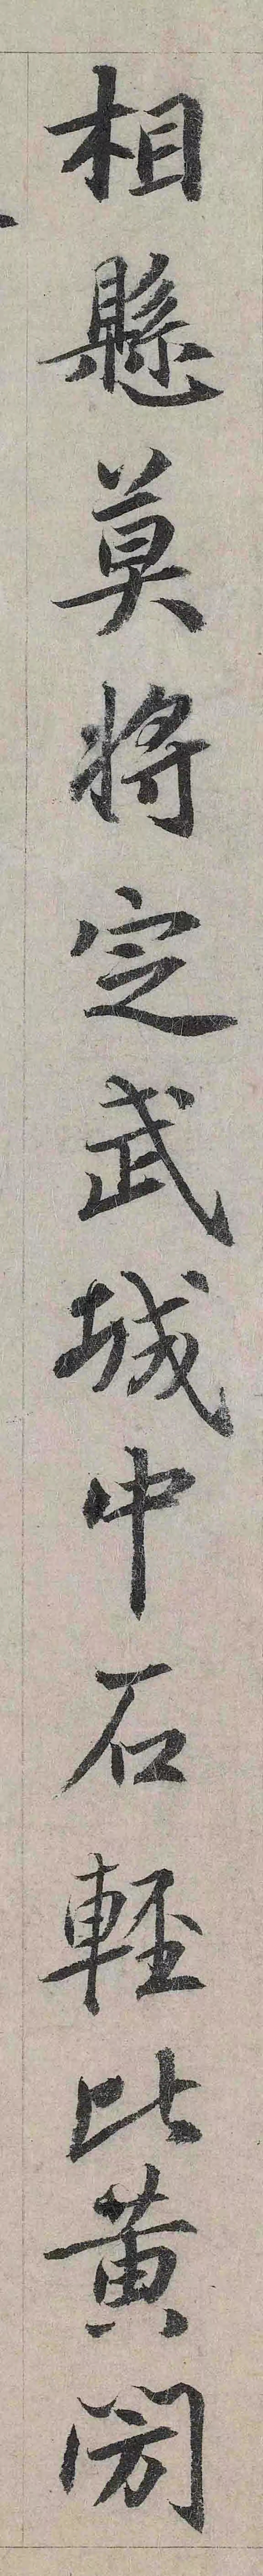 相懸莫將定武城中石輕比黃閍